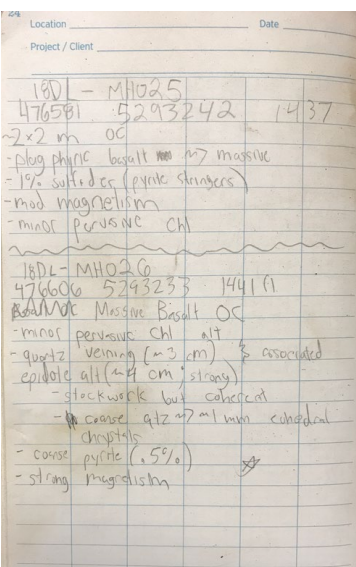 24
Location Date
Project / Client
18DL - MH025
476581 5293242 1437
~2x2 m OC
- plag phyric basalt ~> massive
- 1% sulfides (pyrite stringers)
- mod magnetism
- minor pervasive Chl
18DL - MH026
476606 5293233 1441
Massive Basalt OC
- minor pervasive Chl alt
- quartz veining (~3 cm) & associated
epidote alt (~4 cm; strong)
- stockwork but coherent
- coarse qtz ~> ~1 mm euhedral
chrystals
- coarse pyrite (.5%)
- strong magnetism